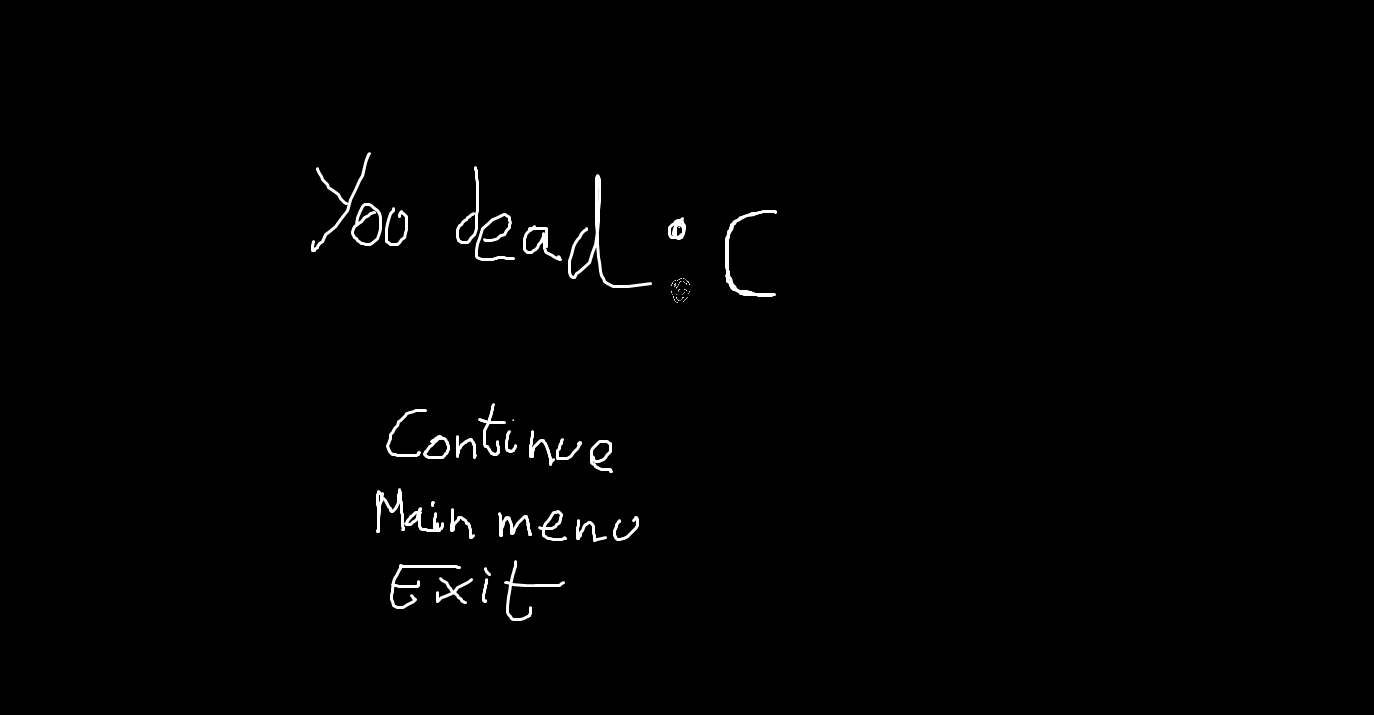 You dead :C
Continue
Main menu
Exit